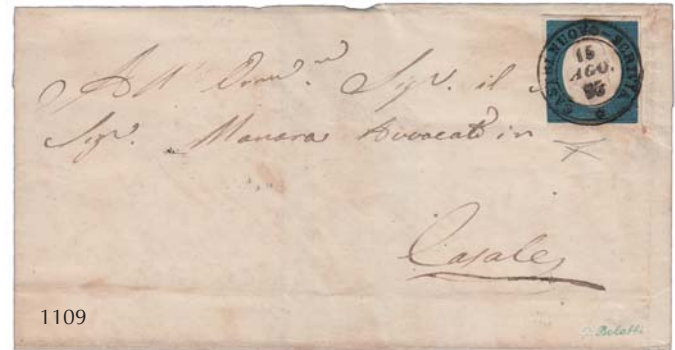 CASTELNUOVO-SCRIVIA
15
AGO.
All'
Sigr. il
Sigr. Manara Avvocato in
Casale
1109